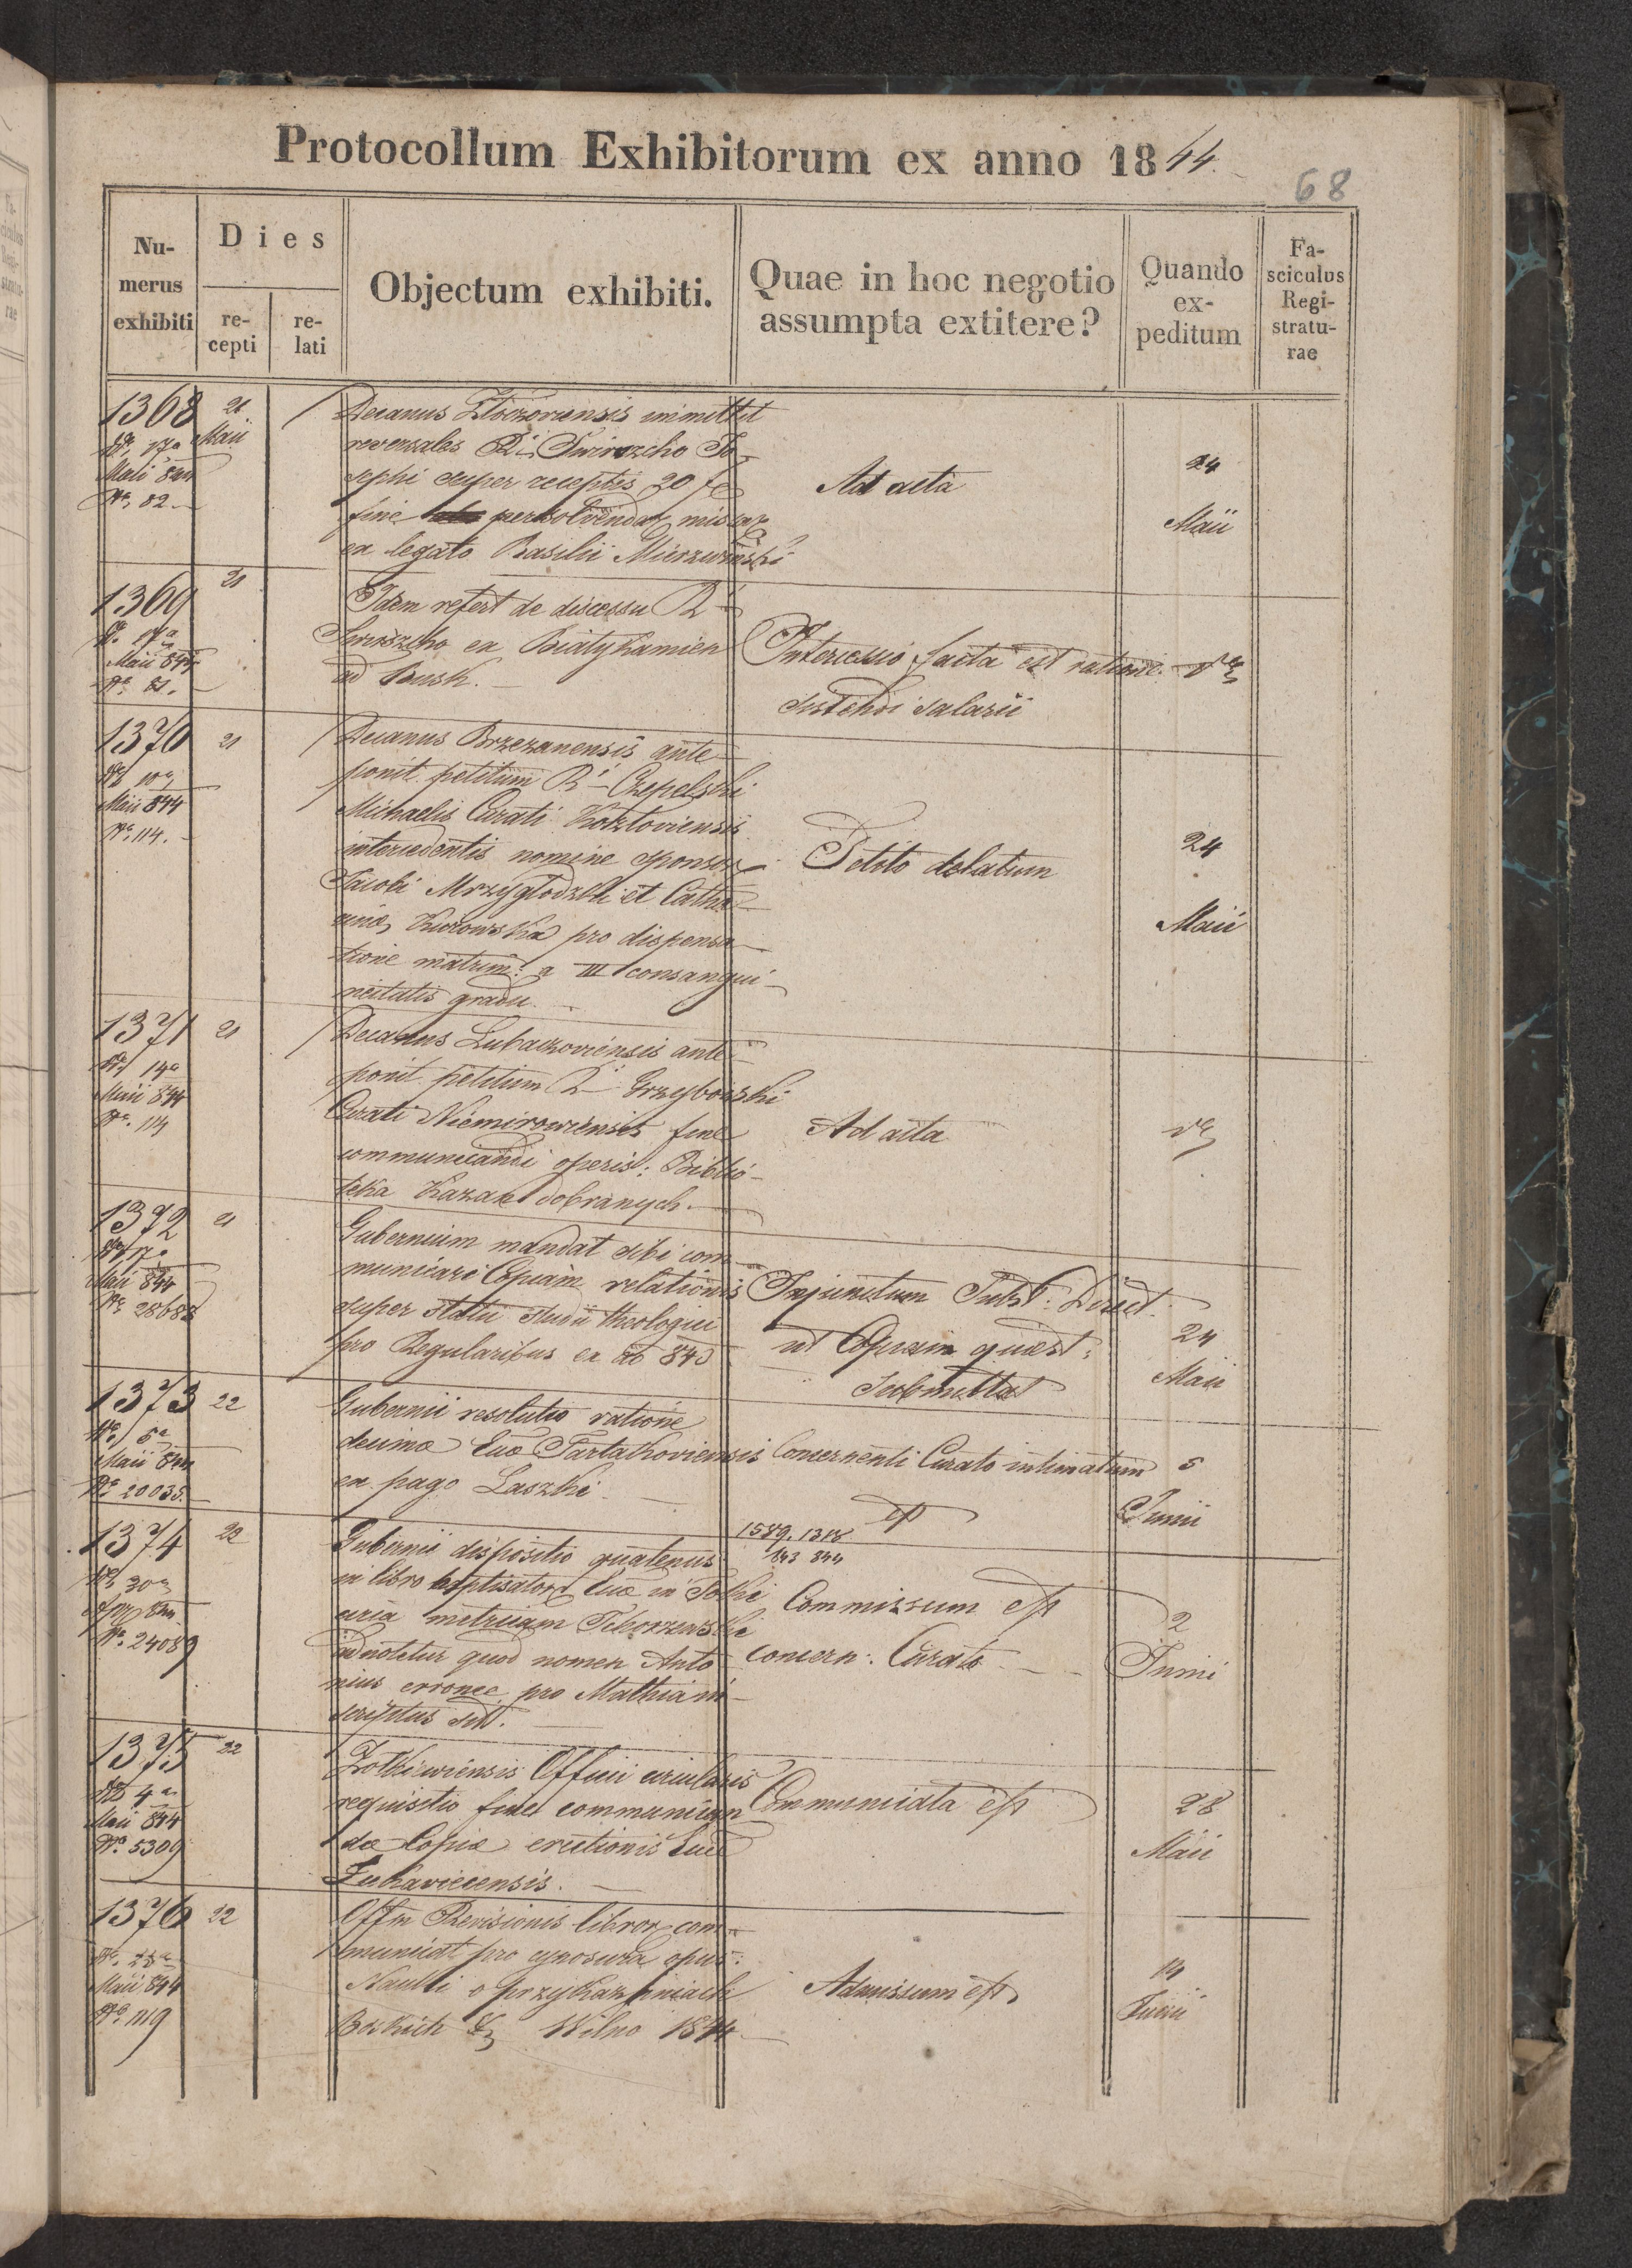 Protocollum Exhibitorum ex anno 1844.
68
Nu-
merus
exhibiti
Dies
re-
cepti
re-
lati
Objectum exhibiti.
Quae in hoc negotio
assumpta extitere?
Quando
ex-
peditum
Fa-
sciculus
Regi-
stratu-
rae
1368
21
Maii
17a
Maii 844
No 82
Decanus Złoczoviensis immittit
reversales Ri
sephi super receptis 20 fr
fine persolvendar missar
ex legato Basilii Mierzwinski
Ad acta
24
Maii
1369
21
17a
Maii 844
No 81.
Idem refert de discessu R
ex Białykamien
ad Busk.
Intercessio facta est ratione
sistendi salarii
1370
21
10a
Maii 844
No 114.
Decanus Brzezanensis ante
ponit petitum Ri Czepelski
Michaelis Curati Kozloviensis
intercedentis nomine sponsor
Jacobi Mrzygłodzki et Catha
rina Kurowska pro dispensa
tione matrim: a III consangui-
neitatis gradu.
Petito delatum
24
Maii
1371
21
14a
Maii 844
No. 114
Decanus Lubaczoviensis ante
ponit petitum R Grzybowski
Curati Niemiroviensis fine
communicandi operis: Biblio-
teka Kazań dobranych.
Ad acta
1372
21
17a
Maii 844
No 28682
Gubernium mandat sibi com-
municari Copiam relationis
super statu studii theologici
pro Regularibus ex ao 843
Injunctum Subst: Direct.
ut Copiam quaest:
Submittat
24
Maii
1373
22
5a
Maii 844
No 20035.
Gubernii resolutio ratione
decimae Ecae Tartakoviensis
ex pago Laszki
Concernenti Curato intimatum
est
5
Junii
1374
22
30a
Apr 844
No. 24089
Gubernii dispositio quatenus
in libro baptisator Ecae in
aria metricam
adnotetur quod nomen Anto
nius erronee pro Mathia in-
scriptus sit.
1589. 1318
843 844
Commissum est
concern: Curato
2
Junii
1375
22
4a
Maii 844
No. 5309
Zolkiewiensis Officii circularis
requisitio fine communican
dae Copiae erectionis Ecae
Zukaviecensis.
Communicata est
28
Maii
1376
22
Maii 844
No 1119
Offm Revisionis libror com-
municat pro cynosura opus:
Nauki o przykazaniach
Boskich Wilno 1844
Admissum est
14
Junii